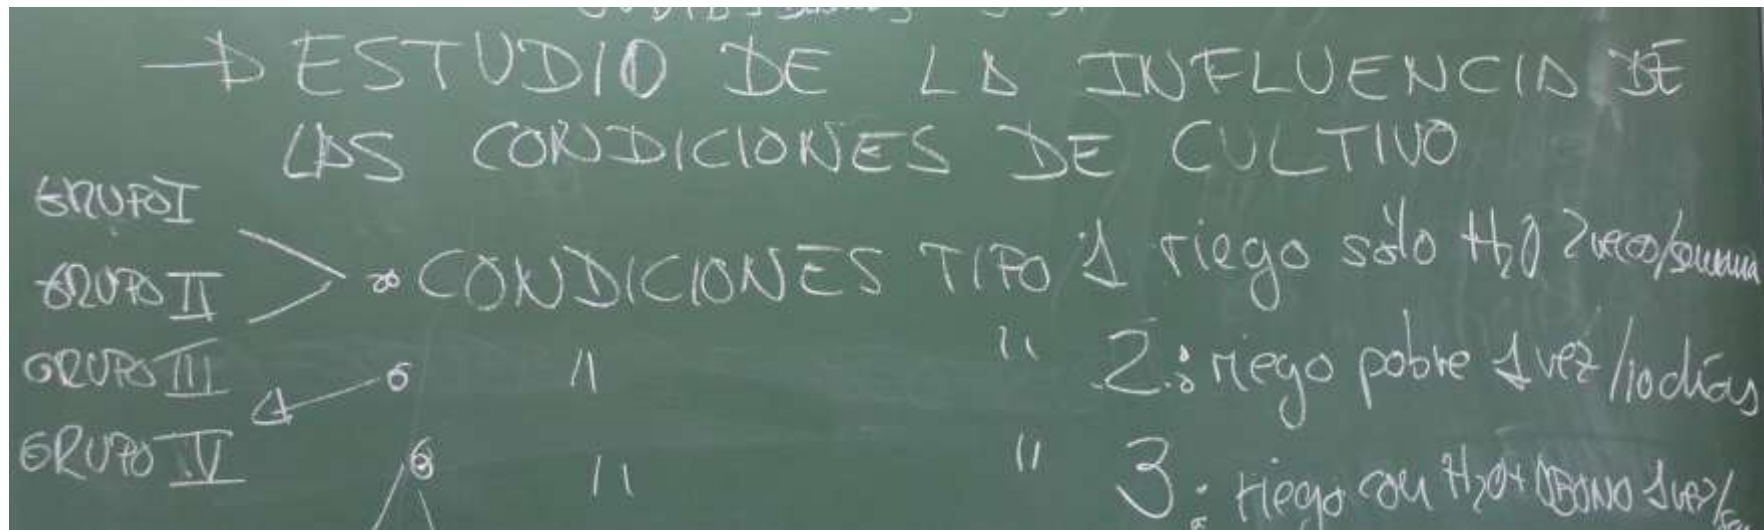 → ESTUDIO DE LA INFLUENCIA DE
LAS CONDICIONES DE CULTIVO
GRUPO I
GRUPO II
GRUPO III
GRUPO IV
CONDICIONES TIPO 1 riego sólo H₂O 2 veces/semana
" " 2: riego pobre 1 vez/10 días
" " 3: riego con H₂O + ABONO 1 vez/